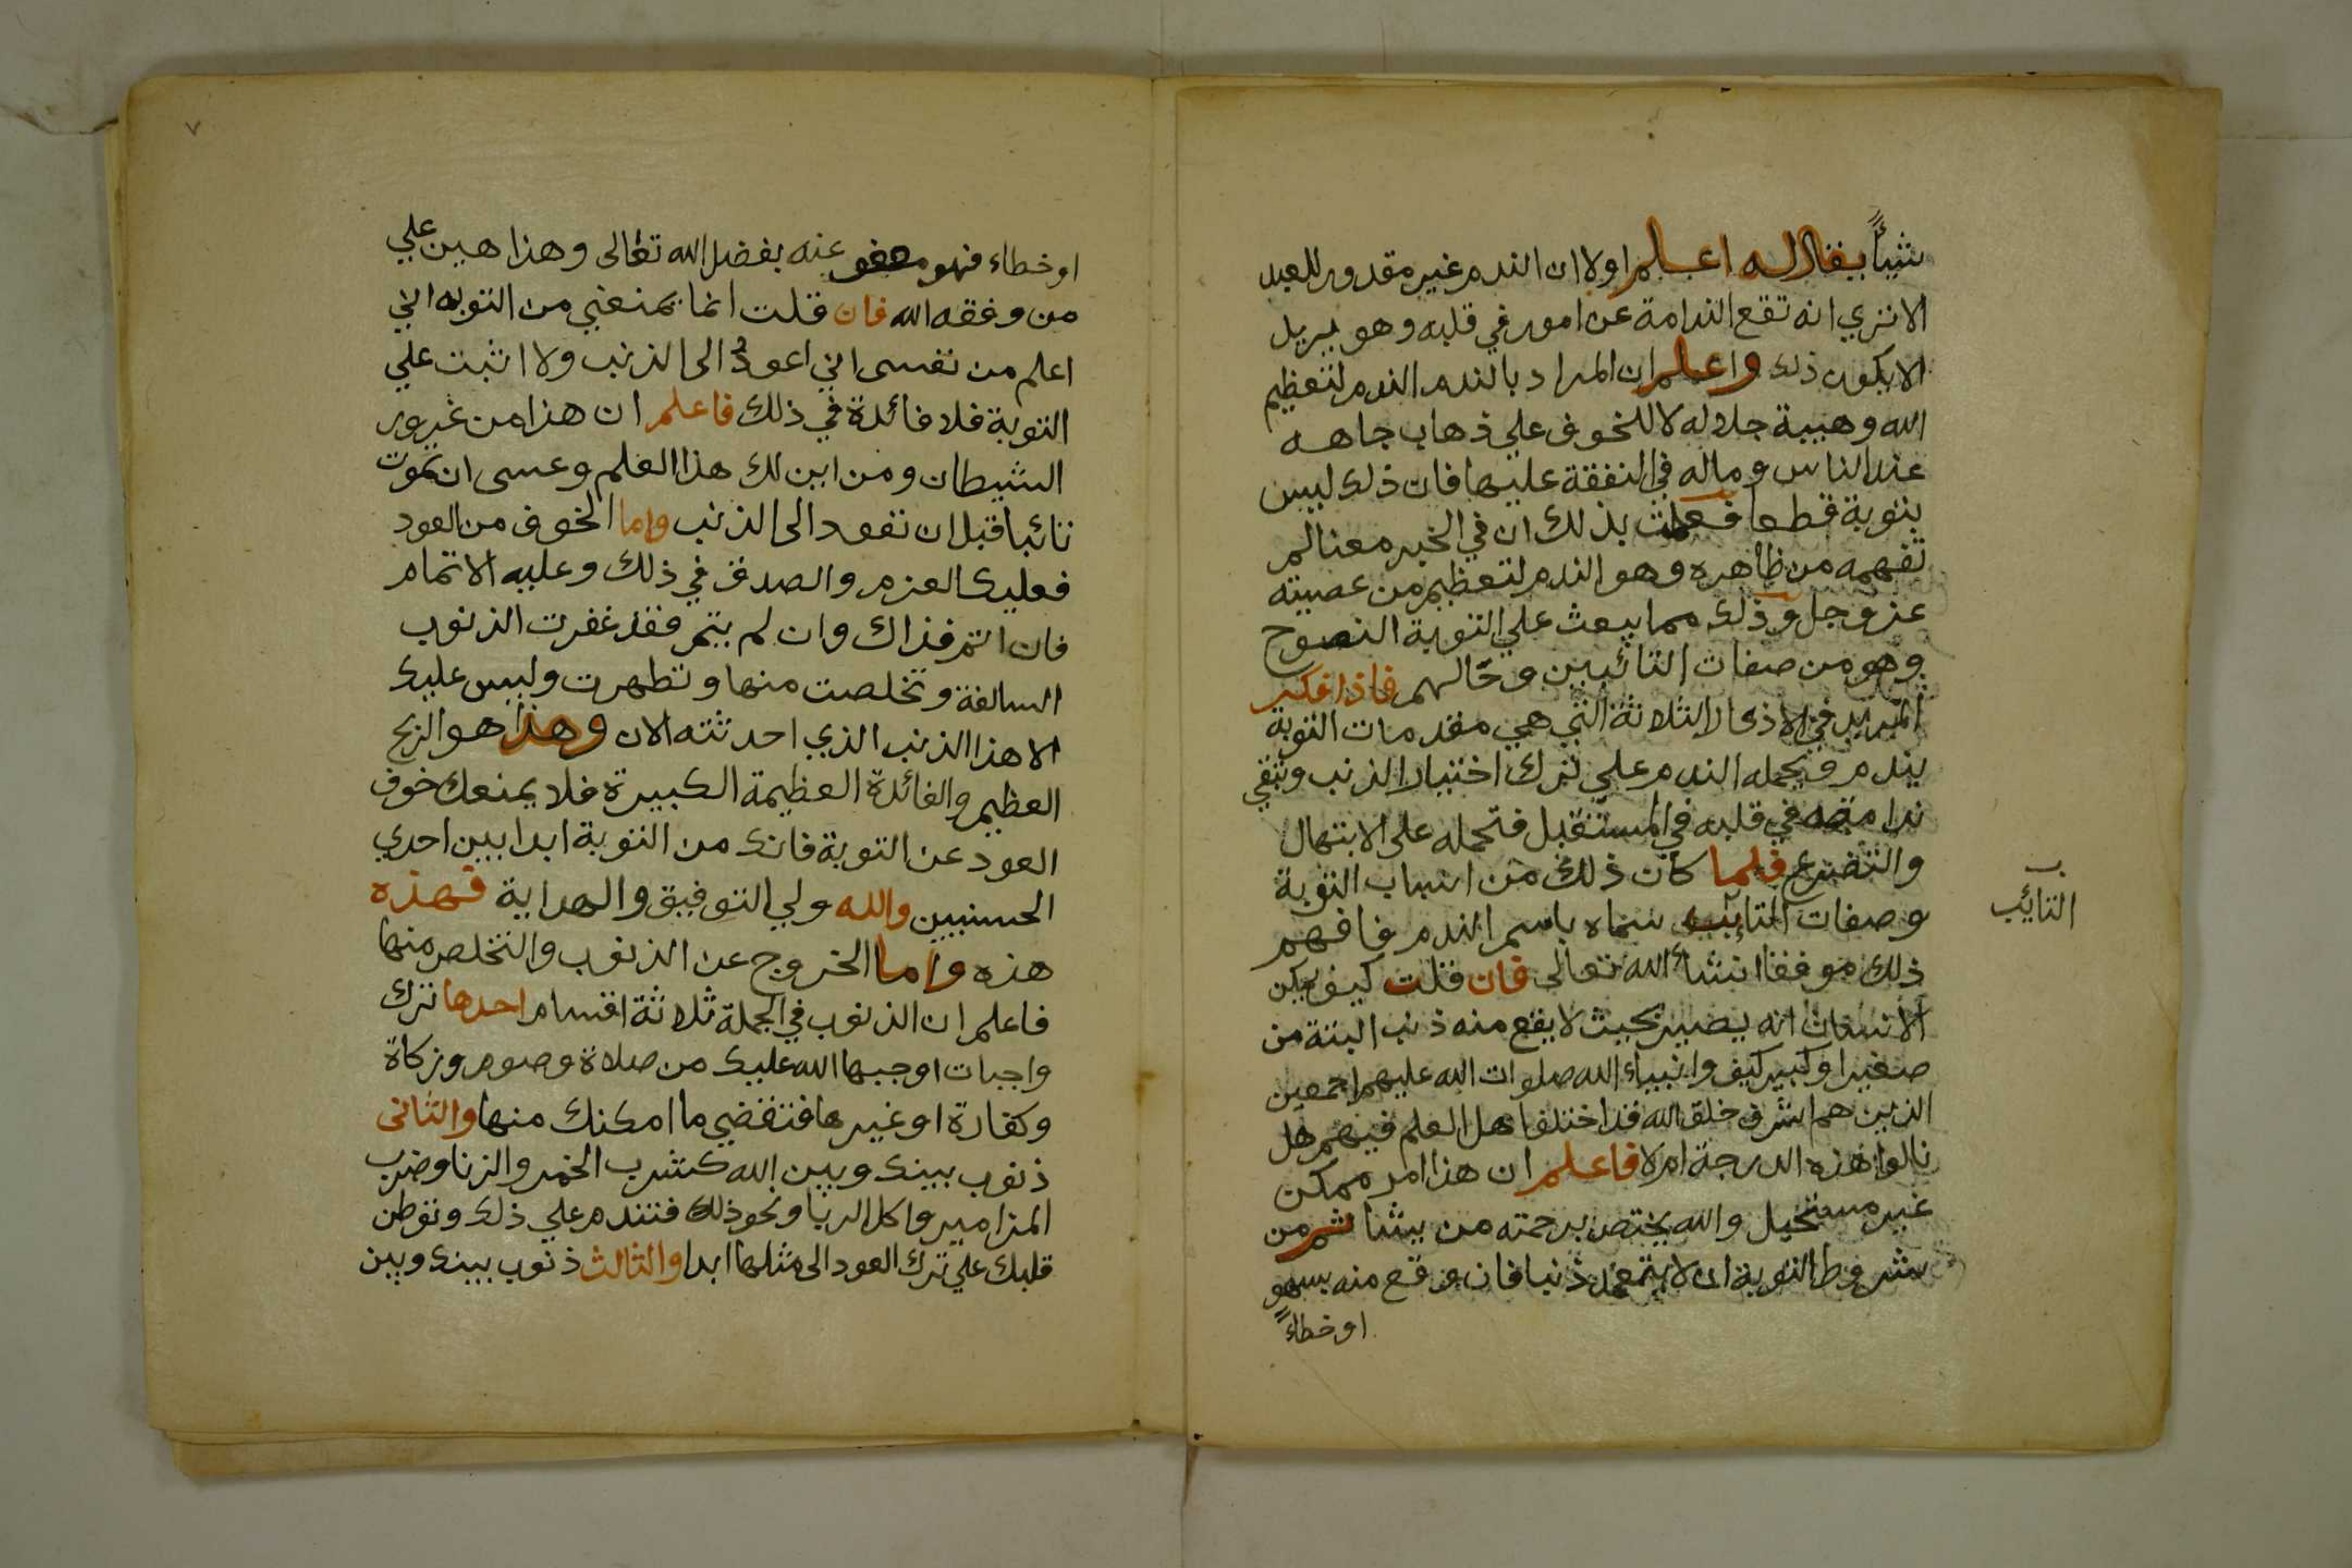 شيئاً يقال له اعلم اولا ان الندم غير مقدور للعبد
الا تري انه تقع الندامة عن امور في قلبه وهو يريد
الا يكون ذلك واعلم ان المراد بالندم الندم لتعظيم
الله وهيبة جلاله لا للخوف علي ذهاب جاهه
عند الناس وماله في النفقة عليها فان ذلك ليس
بتوبة قطعا فعلمت بذلك ان في الخبر معنا لم
تفهمه من ظاهره وهو الندم لتعظيم من عصيته
عز وجل وذلك مما يبعث علي التوبة النصوح
وهو من صفات التائبين وحالهم فاذا فكر
المريد في الاذكار الثلاثة التي هي مقدمات التوبة
يندم ويحمله الندم علي ترك اختيار الذنب وتبقي
ندامته في قلبه في المستقبل فتحمله على الابتهال
والتضرع فلما كان ذلك من اسباب التوبة
وصفات التايب سماه باسم الندم فافهم
ب
التايب
ذلك موفقا انشاء الله تعالى فان قلت كيف يمكن
الانسان انه يصير بحيث لا يقع منه ذنب البتة من
صغير او كبير كيف وانبياء الله صلوات الله عليهم اجمعين
الذين هم اشرف خلق الله قد اختلف اهل العلم فيهم هل
نالوا هذه الدرجة ام لا فاعلم ان هذا امر ممكن
غير مستحيل والله يختص برحمته من يشا ثم من
شروط التوبة ان لا يتعمد ذنبا فان وقع منه بسهو
او خطاءً
٧
او خطاء فهو معفو عنه بفضل الله تعالى وهذا هين علي
من وفقه الله فان قلت انما يمنعني من التوبه اني
اعلم من نفسى اني اعود الى الذنب ولا اثبت علي
التوبة فلا فائدة في ذلك فاعلم ان هذا من غرور
الشيطان ومن اين لك هذا العلم وعسى ان تموت
تائبا قبل ان تعود الى الذنب واما الخوف من العود
فعليك العزم والصدق في ذلك وعليه الاتمام
فان اتم فذاك وان لم يتم فقد غفرت الذنوب
السالفة وتخلصت منها وتطهرت وليس عليك
الا هذا الذنب الذي احدثته الان وهذا هو الربح
العظيم والفائدة العظيمة الكبيرة فلا يمنعك خوف
العود عن التوبة فانك من التوبة ابدا بين احدي
الحسنيين والله ولي التوفيق والهداية فهذه
هذه واما الخروج عن الذنوب والتخلص منها
فاعلم ان الذنوب في الجملة ثلاثة اقسام احدها ترك
واجبات اوجبها الله عليك من صلاة وصوم وزكاة
وكفارة او غيرها فتقضي ما امكنك منها والثانى
ذنوب بينك وبين الله كشرب الخمر والزنا وضرب
المزامير واكل الربا ونحو ذلك فتندم علي ذلك وتوطن
قلبك علي ترك العود الى مثلها ابدا والثالث ذنوب بينك وبين